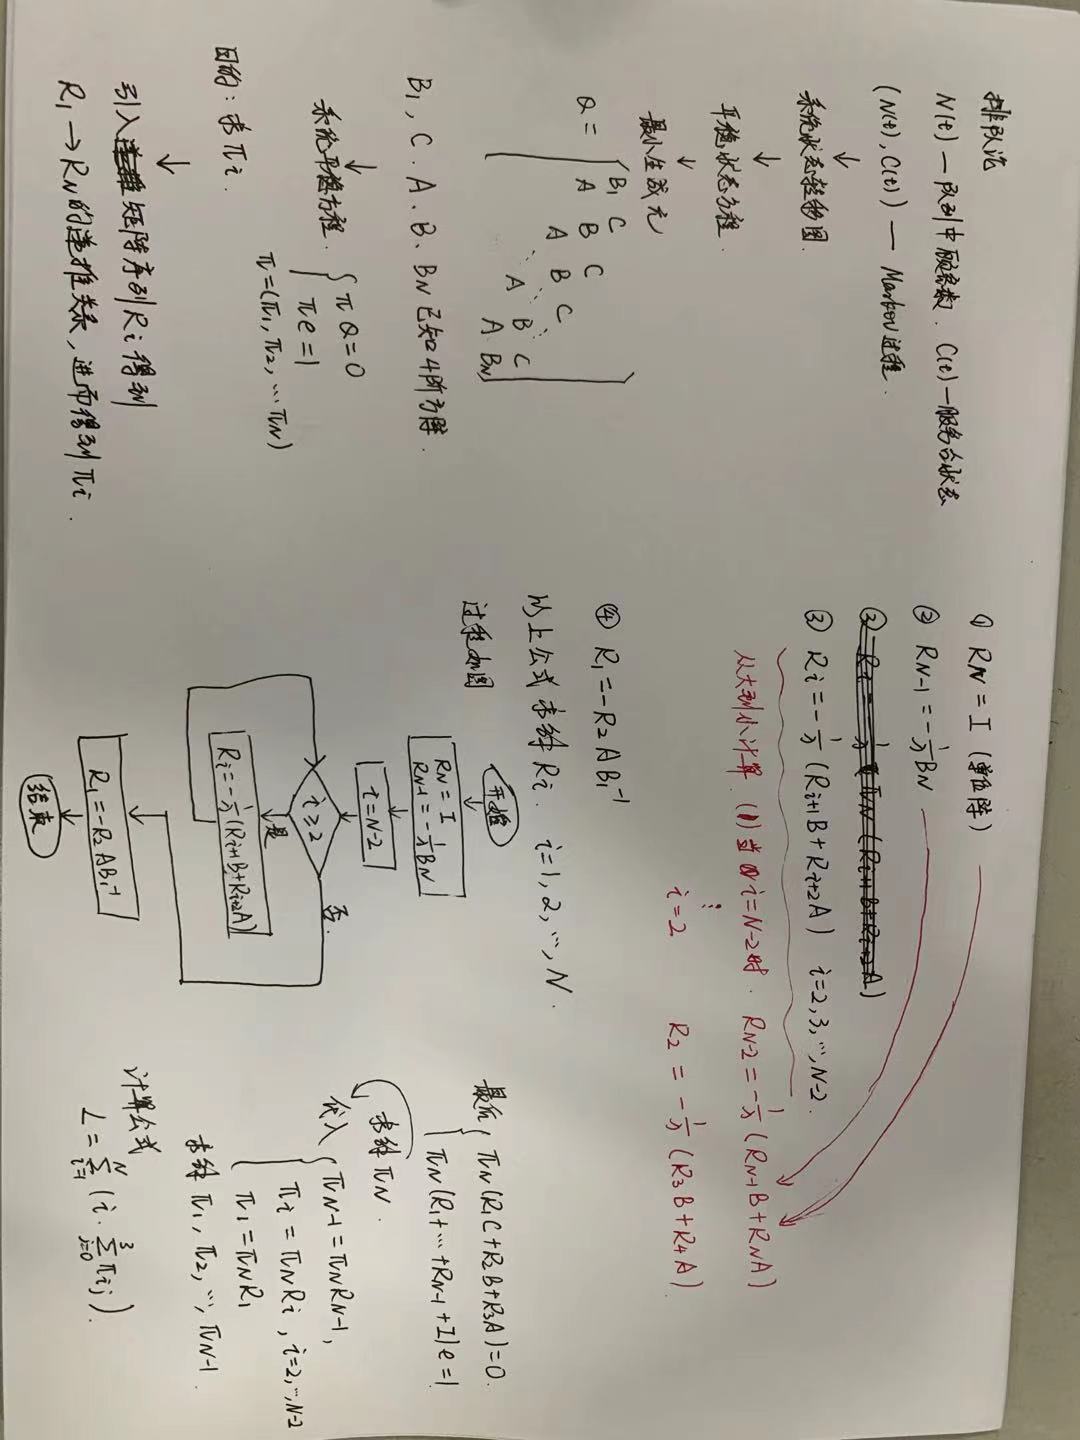 排队论
N(t) — 队列中顾客数. C(t) — 服务台状态
(N(t), C(t)) — Markov过程.
↓
系统状态转移图.
↓
平稳状态方程.
↓
最小生成元
Q =
B₁ C
A B C
A B C
⋱ ⋱
A B C
A B_N
B₁, C. A、B、B_N 已知4阶方阵.
↓
系统平稳方程. { πQ=0
πe=1
π=(π₁, π₂, ⋯ π_N)
目的: 求πi.
↓
引入矩阵序列Ri得到
R₁ → R_N的递推关系, 进而得到πi.
① R_N = I (单位阵)
② R_{N-1} = -1/λ B_N
③ Ri = -1/λ (R_{i+1}B + R_{i+2}A) i=2, 3, ⋯, N-2.
从大到小计算. (1) 当 i=N-2时. R_{N-2} = -1/λ (R_{N-1}B + R_N A)
⋮
i=2 R₂ = -1/λ (R₃B + R₄A)
④ R₁ = -R₂AB₁⁻¹
以上公式求解Ri. i=1, 2, ⋯, N.
过程如图
开始
R_N = I
R_{N-1} = -1/λ B_N
i=N-2
i≥2
否.
是
Ri = -1/λ (R_{i+1}B + R_{i+2}A)
R₁ = -R₂AB₁⁻¹
结束
最后, { π_N(R₁C+R₂B+R₃A)=0.
π_N(R₁+⋯+R_{N-1}+I)e=1
求解π_N.
代入 { π_{N-1} = π_N R_{N-1},
πi = π_N Ri, i=2, ⋯, N-2
π₁ = π_N R₁
求解 π₁, π₂, ⋯, π_{N-1}.
计算公式
L = Σ_{i=1}^{N} (i · Σ_{j=0}^{3} π_{ij}).